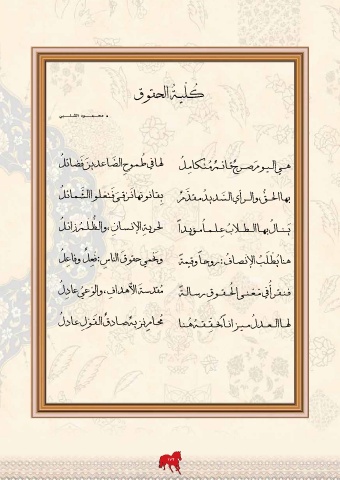 كُلّيةُ الحقوق
د. محمود الشلبي
هي اليوم صرحٌ جَانبهُ مُتكاملُ لها في طُموحِ الصّاعدينَ فضائلُ
بها الحقُّ والرأي السّديدُ مقدّمٌ بقانونها نرقى وتعلو الشّمائلُ
ينالُ بها الطلابُ علماً مؤيداً لحريةِ الإنسانِ، والظُّلمُ زائلُ
هنا يُطلَبُ الإنصافُ: روحاً وقيمةً ويَحمي حقوقَ الناسِ: فعلٌ وفاعلُ
فنقرأُ في مَعْنى الحُقوقِ رسالةً مُقدسةَ الأهدافِ، والوَعيُ عادلُ
لها العدلُ ميزاناً تحققهُ هُنا مُحامٍ نزيهٌ صادقُ القَولِ عادلُ